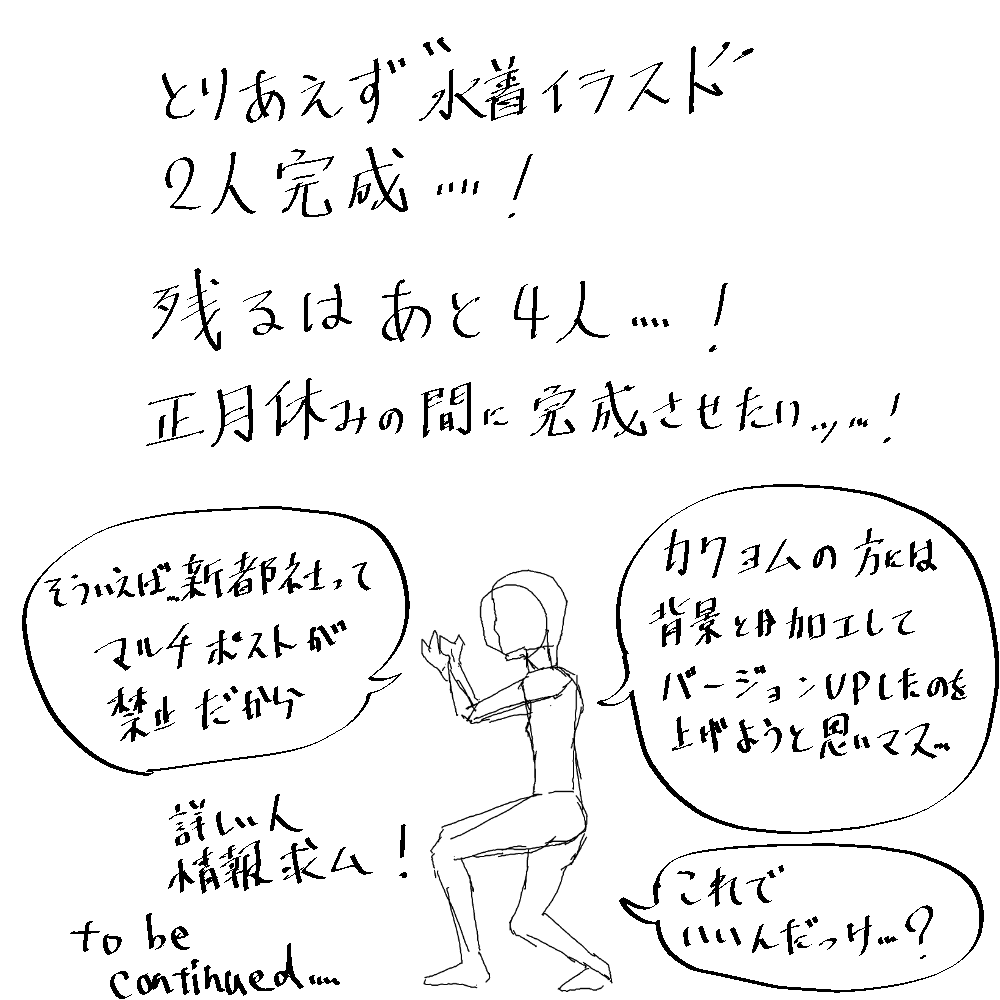 とりあえず"水着イラスト"
2人完成....!
残るはあと4人....!
正月休みの間に完成させたいッ...!
そういえば...新都社って
マルチポストが
禁止だから
カクヨムの方には
背景とか加工して
バージョンUPしたのを
上げようと思いマス...
これで
いいんだっけ...?
詳しい人
情報求ム!
to be
continued....